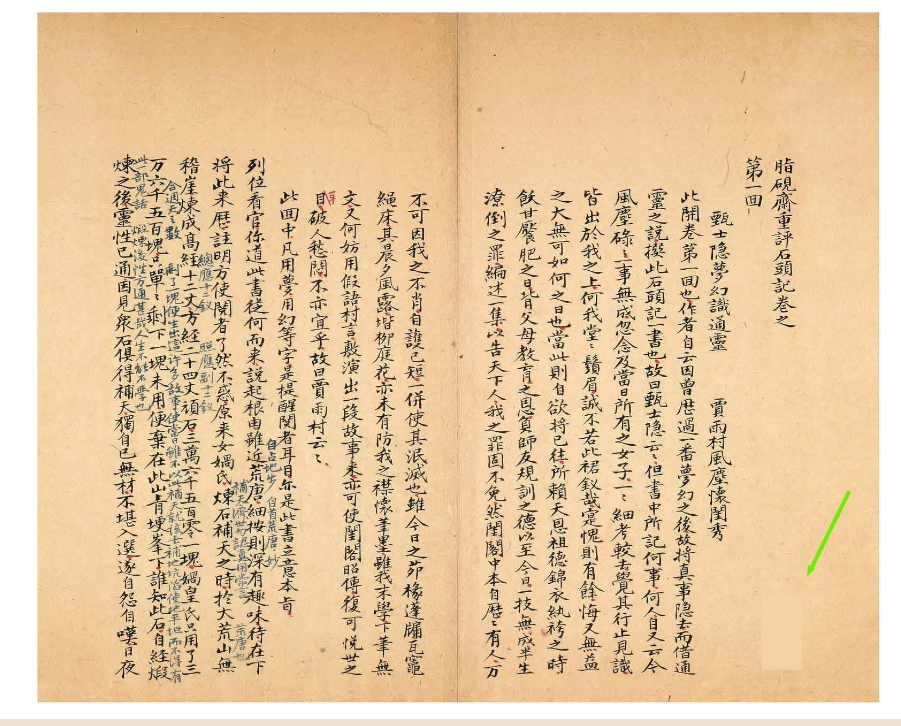 脂硯齋重評石頭記卷之
第一回
甄士隐夢幻識通靈　賈雨村風塵懷閨秀
此開卷第一回也作者自云因曾歷過一番夢幻之後故將真事隐去而借通
靈之說撰此石頭記一書也故曰甄士隐云云但書中所記何事何人自又云今
風塵碌碌一事無成忽念及當日所有之女子一一細考較去覺其行止見識
皆出於我之上何我堂堂鬚眉誠不若此裙釵哉實愧則有餘悔又無益
之大無可如何之日也當此則自欲將已往所賴天恩祖德錦衣紈袴之時
飫甘饜肥之日背父母教育之恩負師友規訓之德以至今日一技無成半生
潦倒之罪編述一集以告天下人我之罪固不免然閨閣中本自歷歷有人万
不可因我之不肖自護己短一併使其泯滅也雖今日之茆椽蓬牖瓦竈
繩床其晨夕風露堦柳庭花亦未有防我之襟懷筆墨雖我未學下筆無
文又何妨用假語村言敷演出一段故事來亦可使閨閣昭傳復可悅世之
目破人愁悶不亦宜乎故曰賈雨村云云
此回中凡用夢用幻等字是提醒閱者耳目亦是此書立意本旨
列位看官你道此書從何而來說起根由雖近荒唐細按則深有趣味待在下
自占地步　自首荒唐妙
將此來歷註明方使閱者了然不惑原來女媧氏煉石補天之時於大荒山無
補天濟世勿認真用常言　荒唐也
稽崖煉成高經十二丈方經二十四丈頑石三萬六千五百零一塊媧皇氏只用了三
總應十二釵　照應副十二釵
万六千五百塊只單單剩下一塊未用便棄在此山青埂峯下誰知此石自經煅
合週天之數　剩了一塊便生出這許多故事使當日雖不以此補天就該去補地之坑陷使地平坦而不得有此一部鬼話
煉之後靈性已通因見衆石俱得補天獨自己無材不堪入選遂自怨自嘆日夜
煅煉後性方通甚哉人生不能不學也